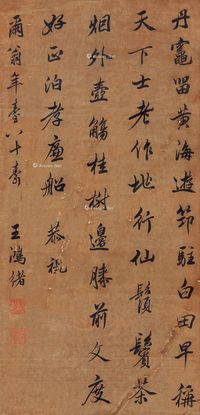 丹竈留黄海遊筇駐白田早稱
天下士老作地行仙鬚鬢茶
烟外壺觴桂樹邊膝前文度
好正泊孝廉船 恭祝
爾翁年臺八十壽
王鴻緒